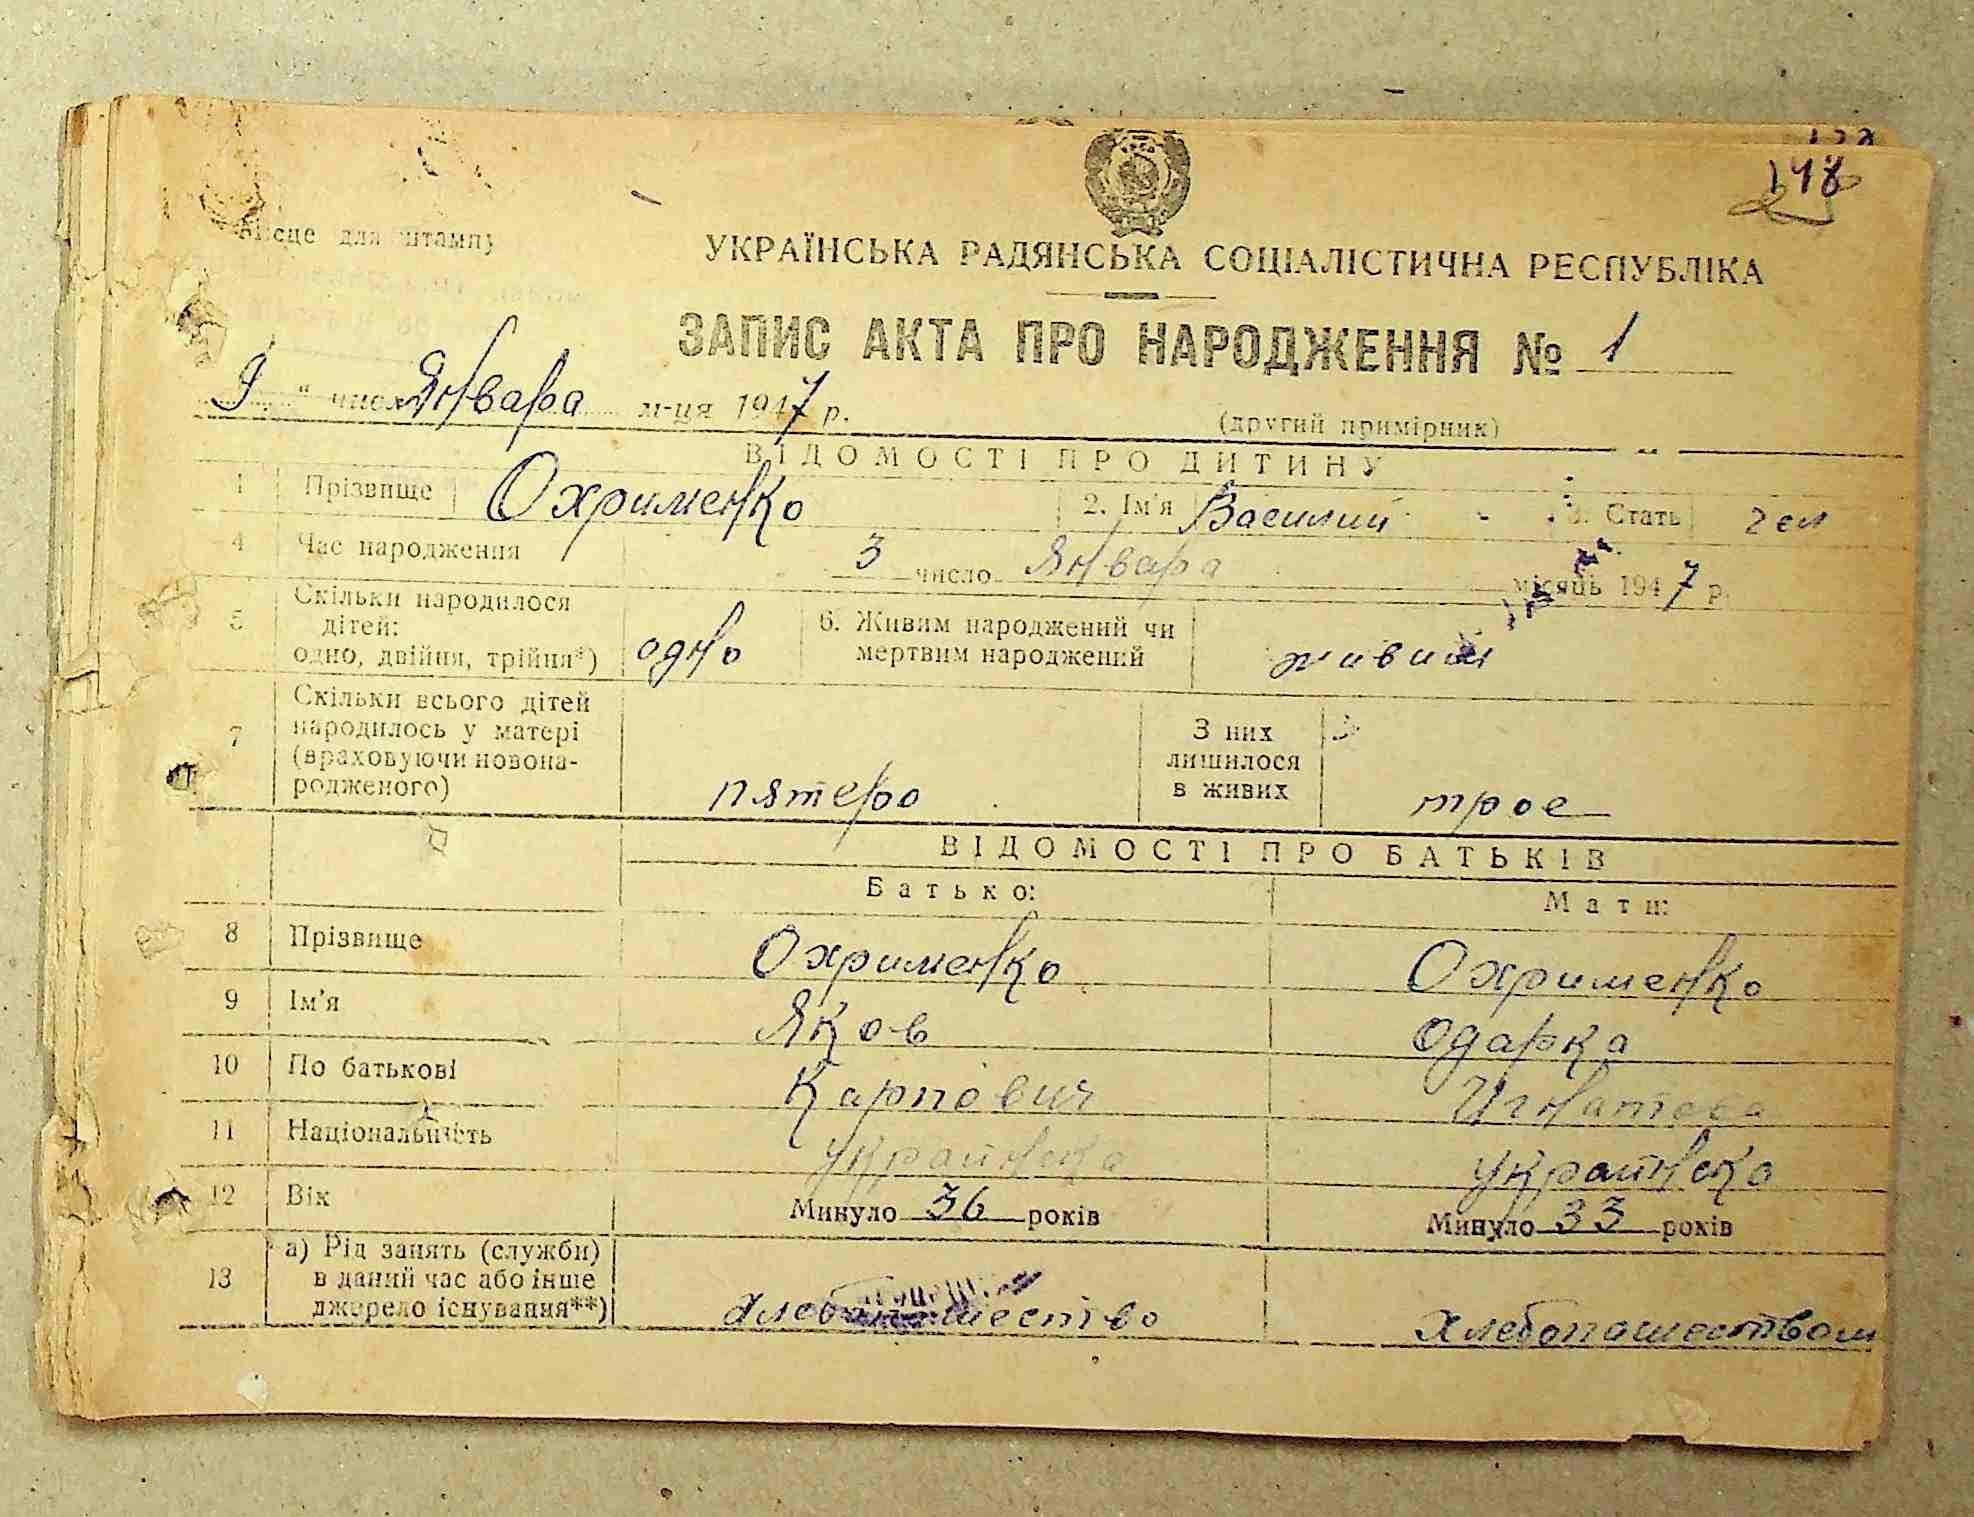 148
Місце для штампу
УКРАЇНСЬКА РАДЯНСЬКА СОЦІАЛІСТИЧНА РЕСПУБЛІКА
ЗАПИС АКТА ПРО НАРОДЖЕННЯ № 1
9 " числа Января м-ця 1947 р.
(другий примірник)
ВІДОМОСТІ ПРО ДИТИНУ
1 Прізвище Охрименко 2. Ім'я Василий 3. Стать чел
4 Час народження 3 число Января місяць 1947 р.
5 Скільки народилося
дітей:
одно, двійня, трійня*) одно
6. Живим народжений чи
мертвим народжений живим
7 Скільки всього дітей
народилось у матері
(враховуючи новона-
родженого) пятеро
З них
лишилося
в живих трое
ВІДОМОСТІ ПРО БАТЬКІВ
Батько: Мати:
8 Прізвище Охрименко Охрименко
9 Ім'я Яков Одарка
10 По батькові Карпович Игнатова
11 Національність украинска украинска
12 Вік Минуло 36 років Минуло 33 років
13 а) Рід занять (служби)
в даний час або інше
джерело існування**) хлебопашество хлебопашеством